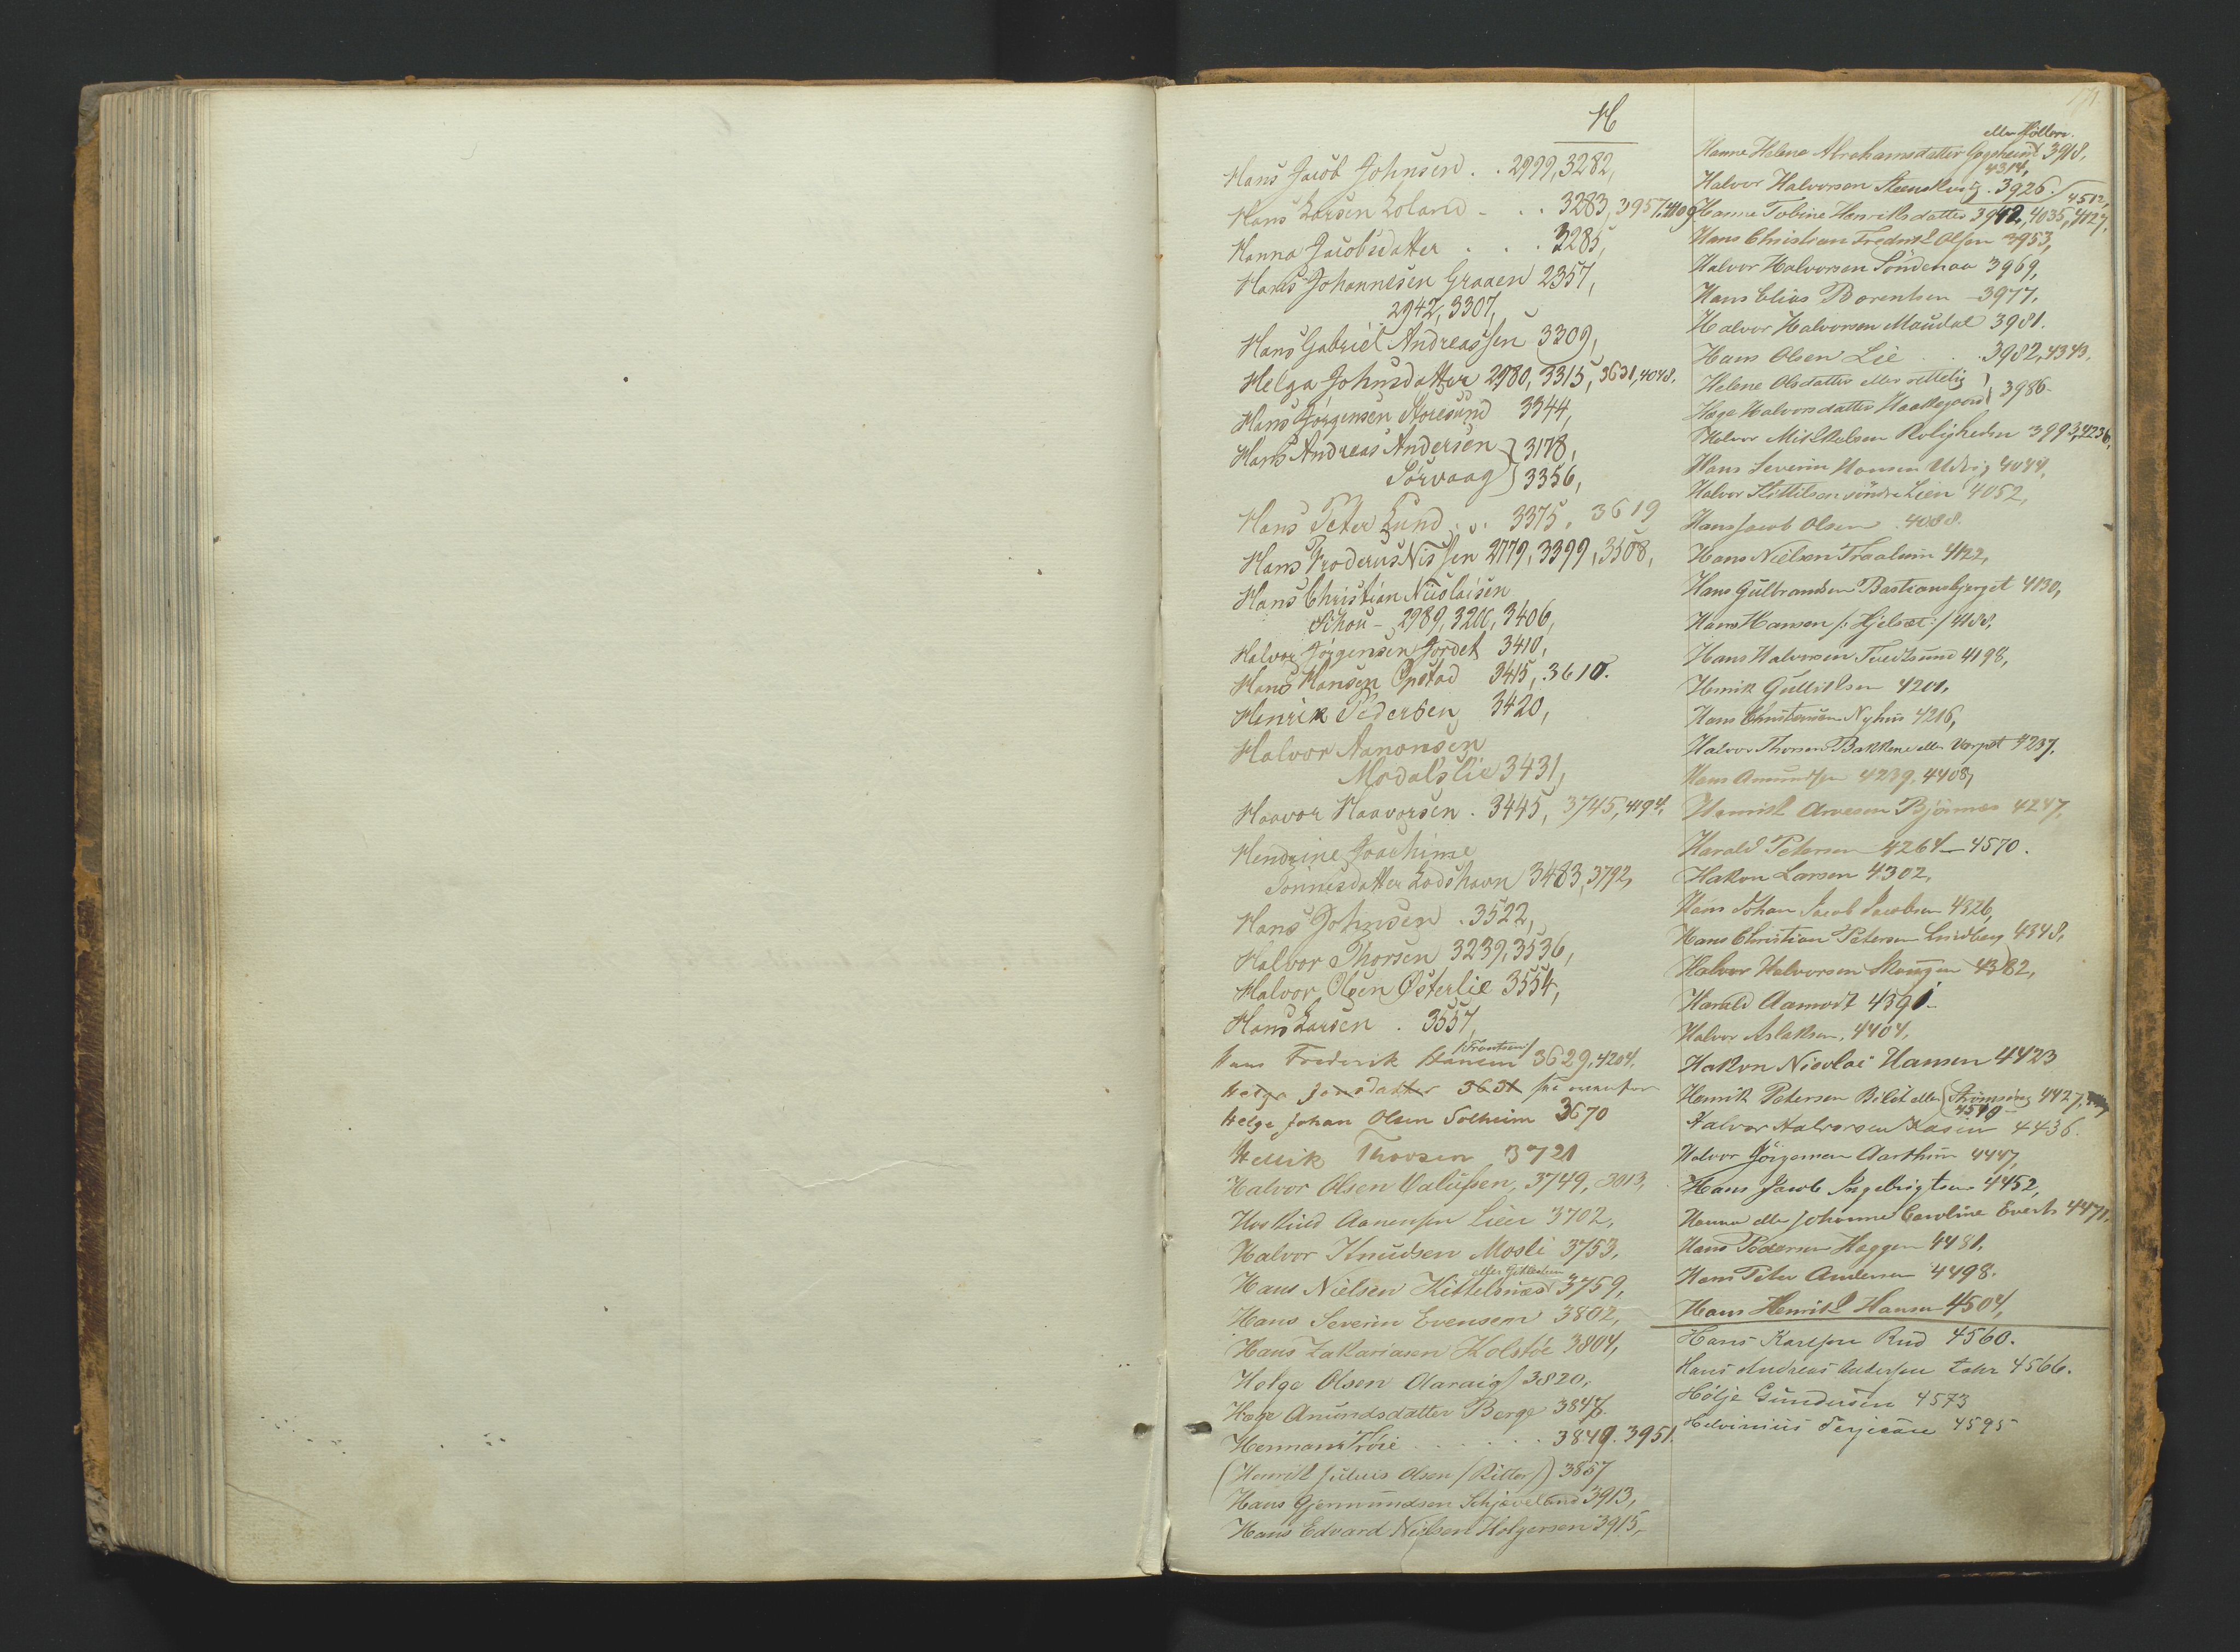 H
Hans Jacob Johnsen . . 2999, 3282,
Hans Larsen Loland - . . 3283, 3957. 4109
Hanna Jacobsdatter . . . 3285,
Hans Johannesen Graaen 2357,
2942, 3307,
Hans Gabriel Andreassen 3309,
Helga Johnsdatter 2980, 3315, 3631, 4048.
Hans Jörgensen Noresund 3344,
Hans Andreas Andersen } 3178,
Sørvaag } 3356,
Hans Peter Lund . . 3375, 3619
Hans Broderus Nissen 2779, 3399, 3508,
Hans Christian Nicolaisen
Schou - 2989, 3200, 3406,
Halvor Jørgensen Jordet 3410,
Hans Hansen Opstad 3415, 3610.
Henrik Pedersen 3420,
Halvor Aanonsen
Modalslie 3431,
Haavor Haavorsen . 3445, 3745, 4194,
Hendrine Joachime
Tønnesdatter Lodshavn 3483, 3792,
Hans Johnsen . 3522,
Halvor Thorsen 3239, 3536,
Halvor Olsen Østerlie 3554,
Hans Larsen . 3557,
/Frantsen/
Hans Frederik Hansen 3629, 4204.
Helga Jensdatter 3631 se ovenfor
Helge Johan Olsen Solheim 3670
Hellik Thorsen 3721
Halvor Olsen 3749, 3013,
Aanensen Lien 3702,
Halvor Knudsen Mosli 3753,
eller
Hans Nielsen Kittelsnæs 3759,
Hans Severin Evensen 3802,
Hans Zakariasen Kolstöe 3804,
Helge Olsen Aaraig 3820,
Hæge Anundsdatter Berge 3847.
Herman Tröie . . . . . . 3849. 3951.
(Henrik Julius Olsen /Ritter/) 3857
Hans Gjermundsen Schjæveland 3913,
Hans Edvard Nielsen Holgersen 3915,
171.
eller Höllen.
Hanne Helene Abrahamsdatter 3918,
4314,
Halvor Halvorsen 3926.
4512,
Hanne Tobine Henriksdatter 3942, 4035, 4127,
Hans Christian Fredrik Olsen 3953,
Halvor Halvorsen Söndenaa 3969,
Hans Elias Borentsen - 3977,
Halvor Halvorsen Maudal 3981.
Hans Olsen Lie . . . 3982, 4343.
Helene Olsdatter eller rettelig }
Hæge Halvorsdatter Haatvejord } 3986-
Halvor Mikkelsen Roligheden 3993, 4236,
Hans Severin Hansen Udvig 4044,
Halvor Kittilsen söndre Lien 4052,
Hans Jacob Olsen . 4088.
Hans Nielsen Traaluim 4122,
Hans Gulbrandsen Bastiansbjerget 4130,
Hans Hansen /: Hjelset :/ 4188,
Hans Halvorsen Tvedtsund 4198,
Henrik Gulliksen 4201,
Hans Christensen Nyhus 4216,
Halvor Thorsen Bakkene eller Varpet 4237.
Hans Amundsen 4239. 4408,
Henrik Arvesen Bjönnes 4247,
Harald Petersen 4264 - 4570.
Hakon Larsen 4302,
Hans Johan Jacob Jacobsen 4326,
Hans Christian Petersen Lindberg 4348,
Halvor Halvorsen Skougen 4382,
Harald Aamodt 4391.
Halvor Aslaksen. 4404,
Hakon Nicolai Hansen 4423
Henrik Petersen Bilit eller Strömsvig 4427,
4510
Halvor Halvorsen Kasen 4436.
Halvor Jörgensen Aarthun 4447,
Hans Jacob Ingebrigtsen 4452,
Hanna eller Johanne Caroline Everts 4471,
Hans Pedersen Haggen 4481,
Hans Peter Andersen 4498.
Hans Henrik Hansen 4504,
Hans Karlsen Rud 4560.
Hans Andreas Andersen 4566.
Hölje Gundersen 4573
Helvinius 4595